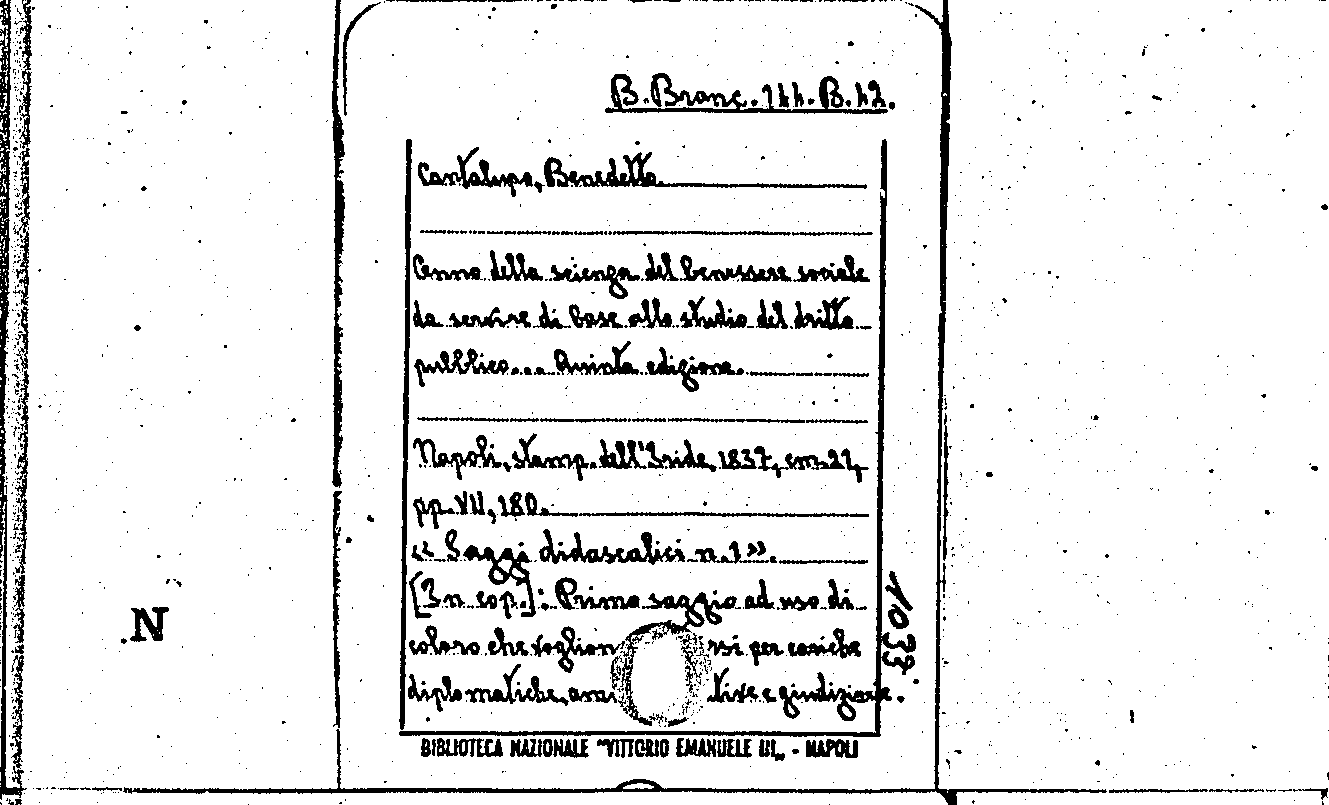 B. Branc. 144. B. 42.
Cantalupo, Benedetto
Cenno della scienza del benessere sociale
da servire di base allo studio del dritto
pubblico... Quinta edizione.
Napoli, stamp. dell'Iride, 1837, cm. 21,
pp. VII, 180.
« Saggi didascalici n. 1 ».
[In cop.]: Primo saggio ad uso di
coloro che voglion rsi per cariche
diplomatiche, ami tive e giudiziarie.
1033.
N
BIBLIOTECA NAZIONALE "VITTORIO EMANUELE III„ - NAPOLI